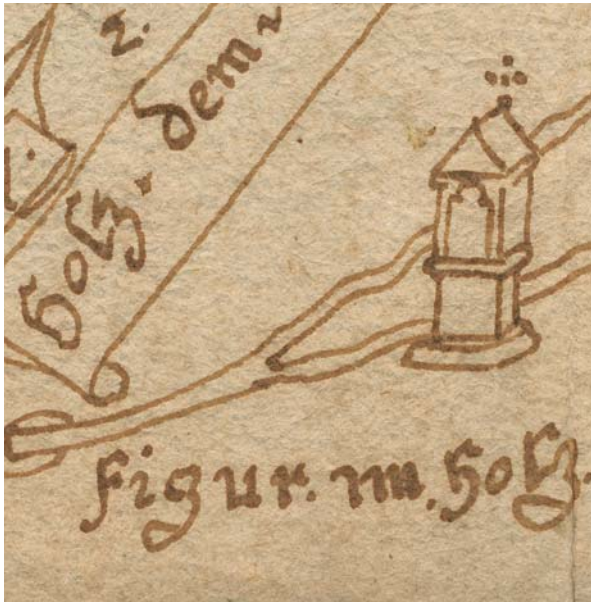 holz. dem
figur. im. holz.